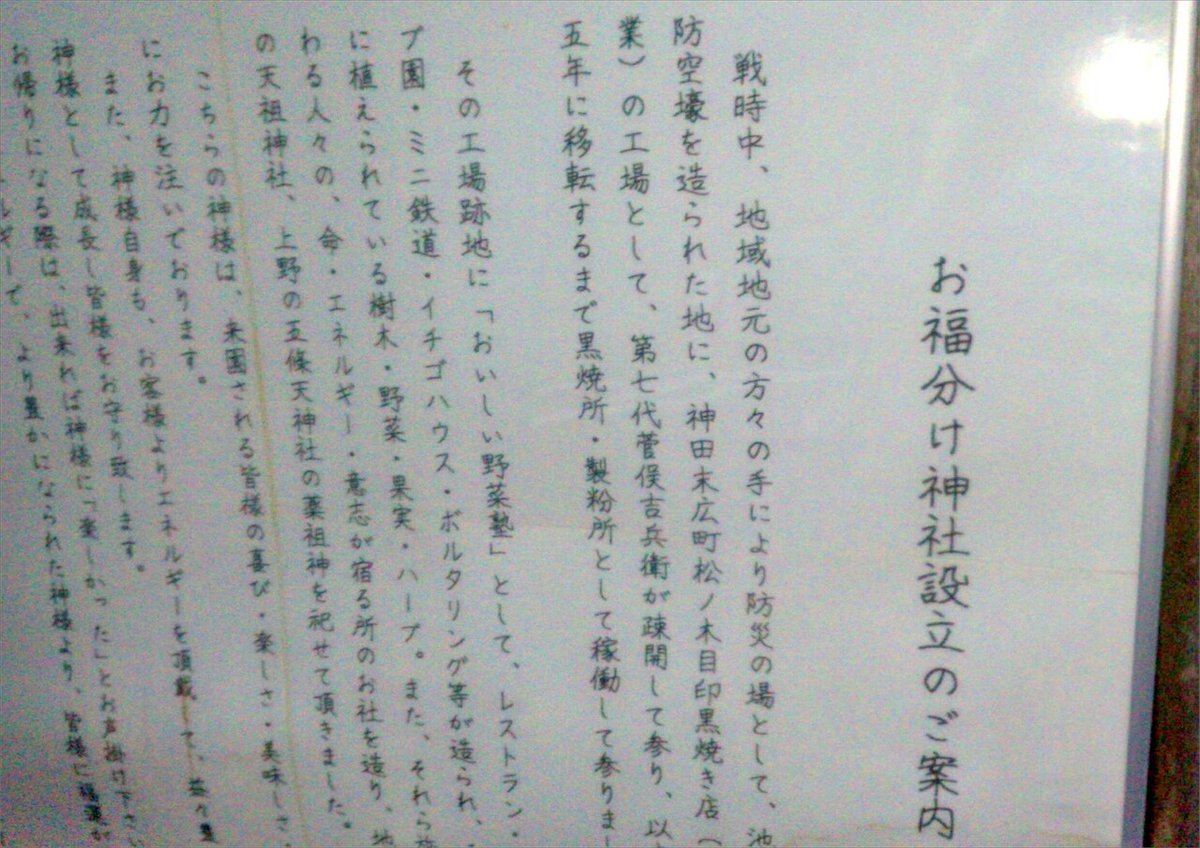 お福分け神社設立のご案内
戦時中、地域地元の方々の手により防災の場として、池
防空壕を造られた地に、神田末広町松ノ木目印黒焼き店(
業)の工場として、第七代菅俣吉兵衛が疎開して参り、以
五年に移転するまで黒焼所・製粉所として稼働して参りまし
その工場跡地に「おいしい野菜塾」として、レストラン・
プ園・ミニ鉄道・イチゴハウス・ボルタリング等が造られ、
に植えられている樹木・野菜・果実・ハーブ。また、それら
わる人々の、命・エネルギー・意志が宿る所のお社を造り、地
の天祖神社、上野の五條天神社の薬祖神を祀せて頂きました。
こちらの神様は、来園される皆様の喜び・楽しさ・美味しさ、
にお力を注いでおります。
また、神様自身も、お客様よりエネルギーを頂戴して、益々豊
神様として成長し皆様をお守り致します。
お帰りになる際は、出来れば神様に「楽しかった」とお声掛け下さい
ルギーで、より豊かになられた神様より、皆様に福運が